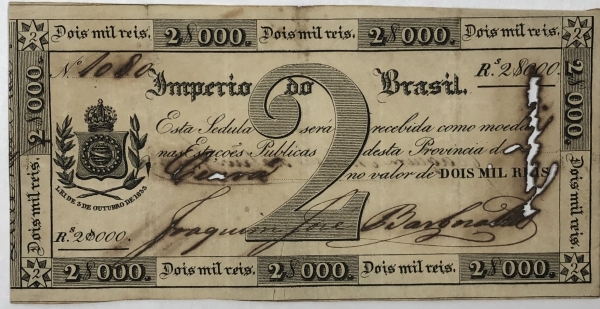 Dois mil reis. 2$000. Dois mil reis. 2$000. Dois mil reis.
Nº 1080 Imperio do Brasil. Rs 2$000.
2
Esta Sedula será recebida como moeda
nas Estações Publicas desta Provincia de
Ceará no valor de DOIS MIL REIS
LEI DE 3 DE OUTUBRO DE 1833
Rs 2$000. Joaquim José Barbosa
2$000. Dois mil reis.
2$000. Dois mil reis.
2 2$000. Dois mil reis. 2$000. Dois mil reis. 2$000. 2